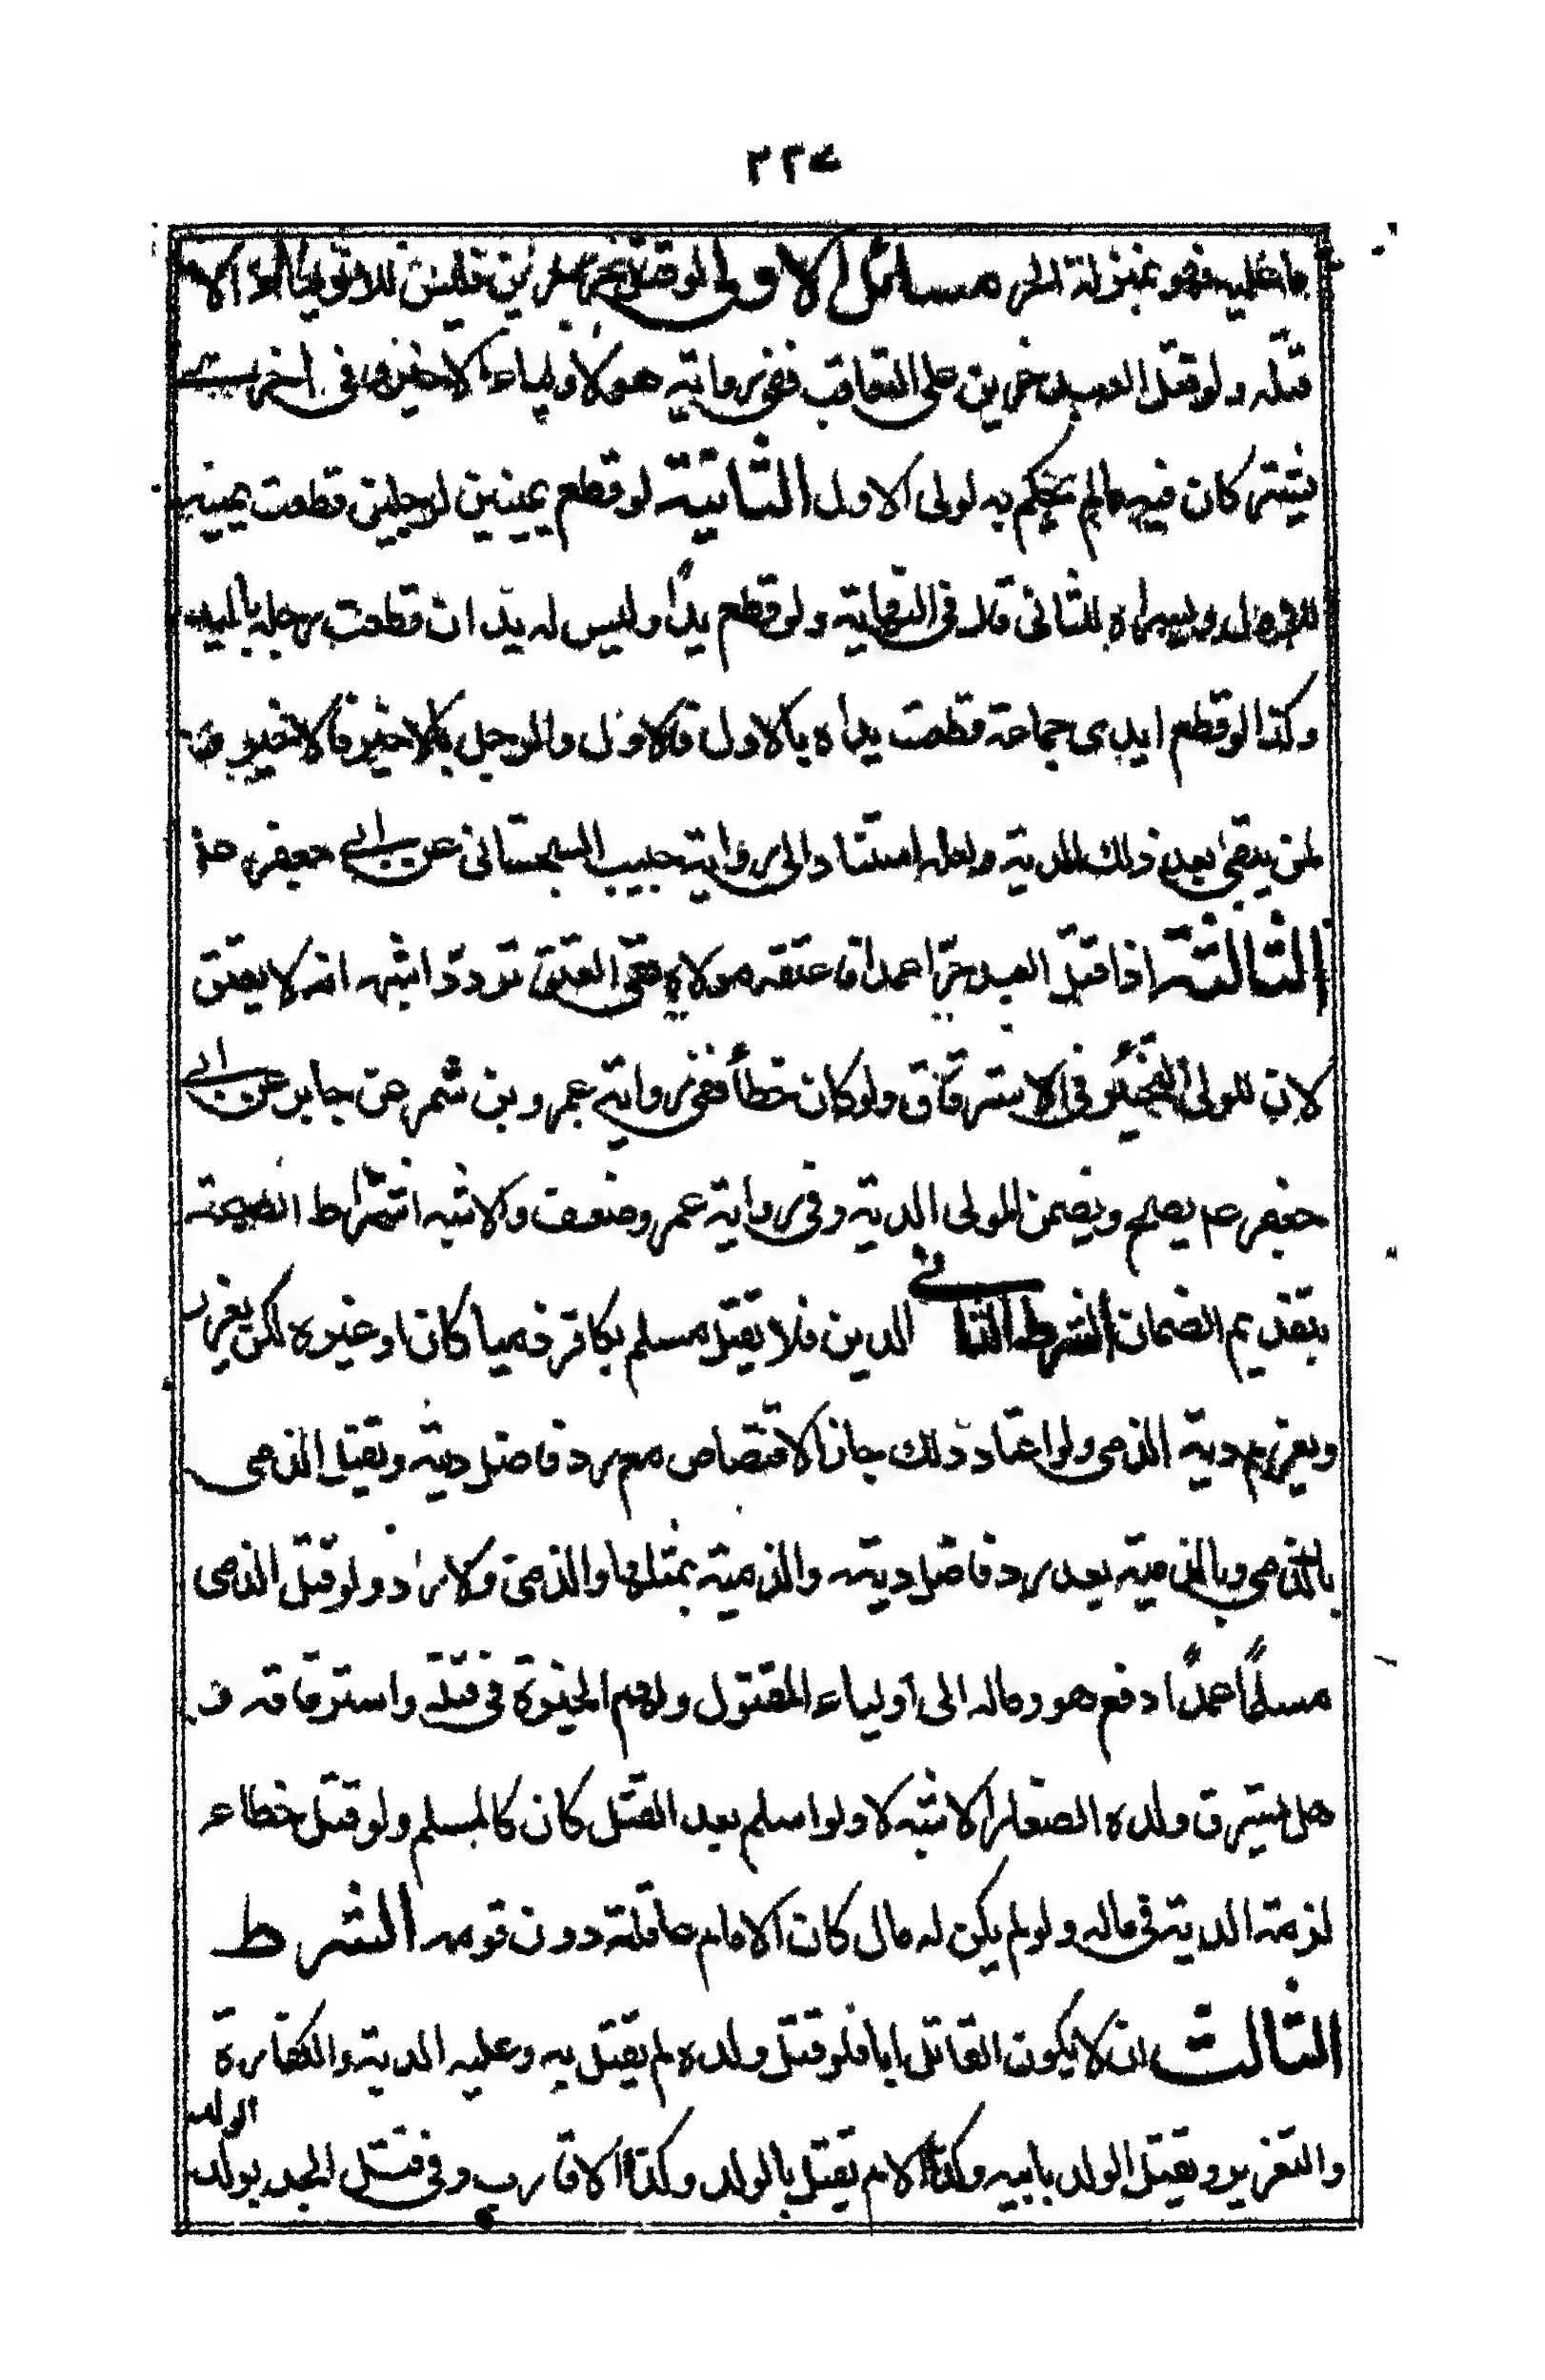 ٢٢٤
ما عليه فهو بمنزلة الحر مسائل الاولى لو قتل حر حرين فليس للاولياء الا
قتله ولو قتل العبد حرين على التعاقب ففي رواية هو لاولياء الاخير وفي اخرى
يشتركان فيه ما لم يحكم به لولى الاول الثانية لو قطع يمينين لرجلين قطعت يمينه
للاول ويسراه للثانى قال فى النهاية ولو قطع يدا وليس له يدان قطعت رجله باليد
وكذا لو قطع ايدى جماعة قطعت يداه بالاول فالاول والرجل بالاخير فالاخير
لمن يبقى بعد ذلك الدية ولعله استنادا الى رواية حبيب السجستانى عن ابى جعفر ء
الثالثة اذا قتل العبد حرا عمدا فاعتقه مولاه ففى العتق تردد اشبهه انه لا يعتق
لان للولى التخيير فى الاسترقاق ولو كان خطأ ففى رواية عمرو بن شمر عن جابر عن ابى
جعفر ء يصح ويضمن المولى الدية وفى رواية عمرو ضعف والاشبه اشتراط الصحة
بتقديم الضمان الشرط الثانى الدين فلا يقتل مسلم بكافر ذميا كان او غيره لكن يعزر
ويغرم دية الذمى ولو اعتاد ذلك جاز الاقتصاص مع رد فاضل ديته ويقتل الذمى
بالذمى وبالذمية بعد رد فاضل ديته والذمية بمثلها والذمى ولا رد ولو قتل الذمى
مسلما عمدا دفع هو وماله الى اولياء المقتول ولهم الخيرة فى قتله واسترقاقه و
هل يسترق ولده الصغار الاشبه لا ولو اسلم بعد القتل كان كالمسلم ولو قتل خطاء
لزمته الدية فى ماله ولو لم يكن له مال كان الامام عاقلته دون قومه الشرط
الثالث ان لا يكون القاتل ابا فلو قتل ولده لم يقتل به وعليه الدية والكفارة
والتعزير ويقتل الولد بابيه وكذا الام يقتل بالولد وكذا الاقارب وفى قتل الجد بولد
الولد